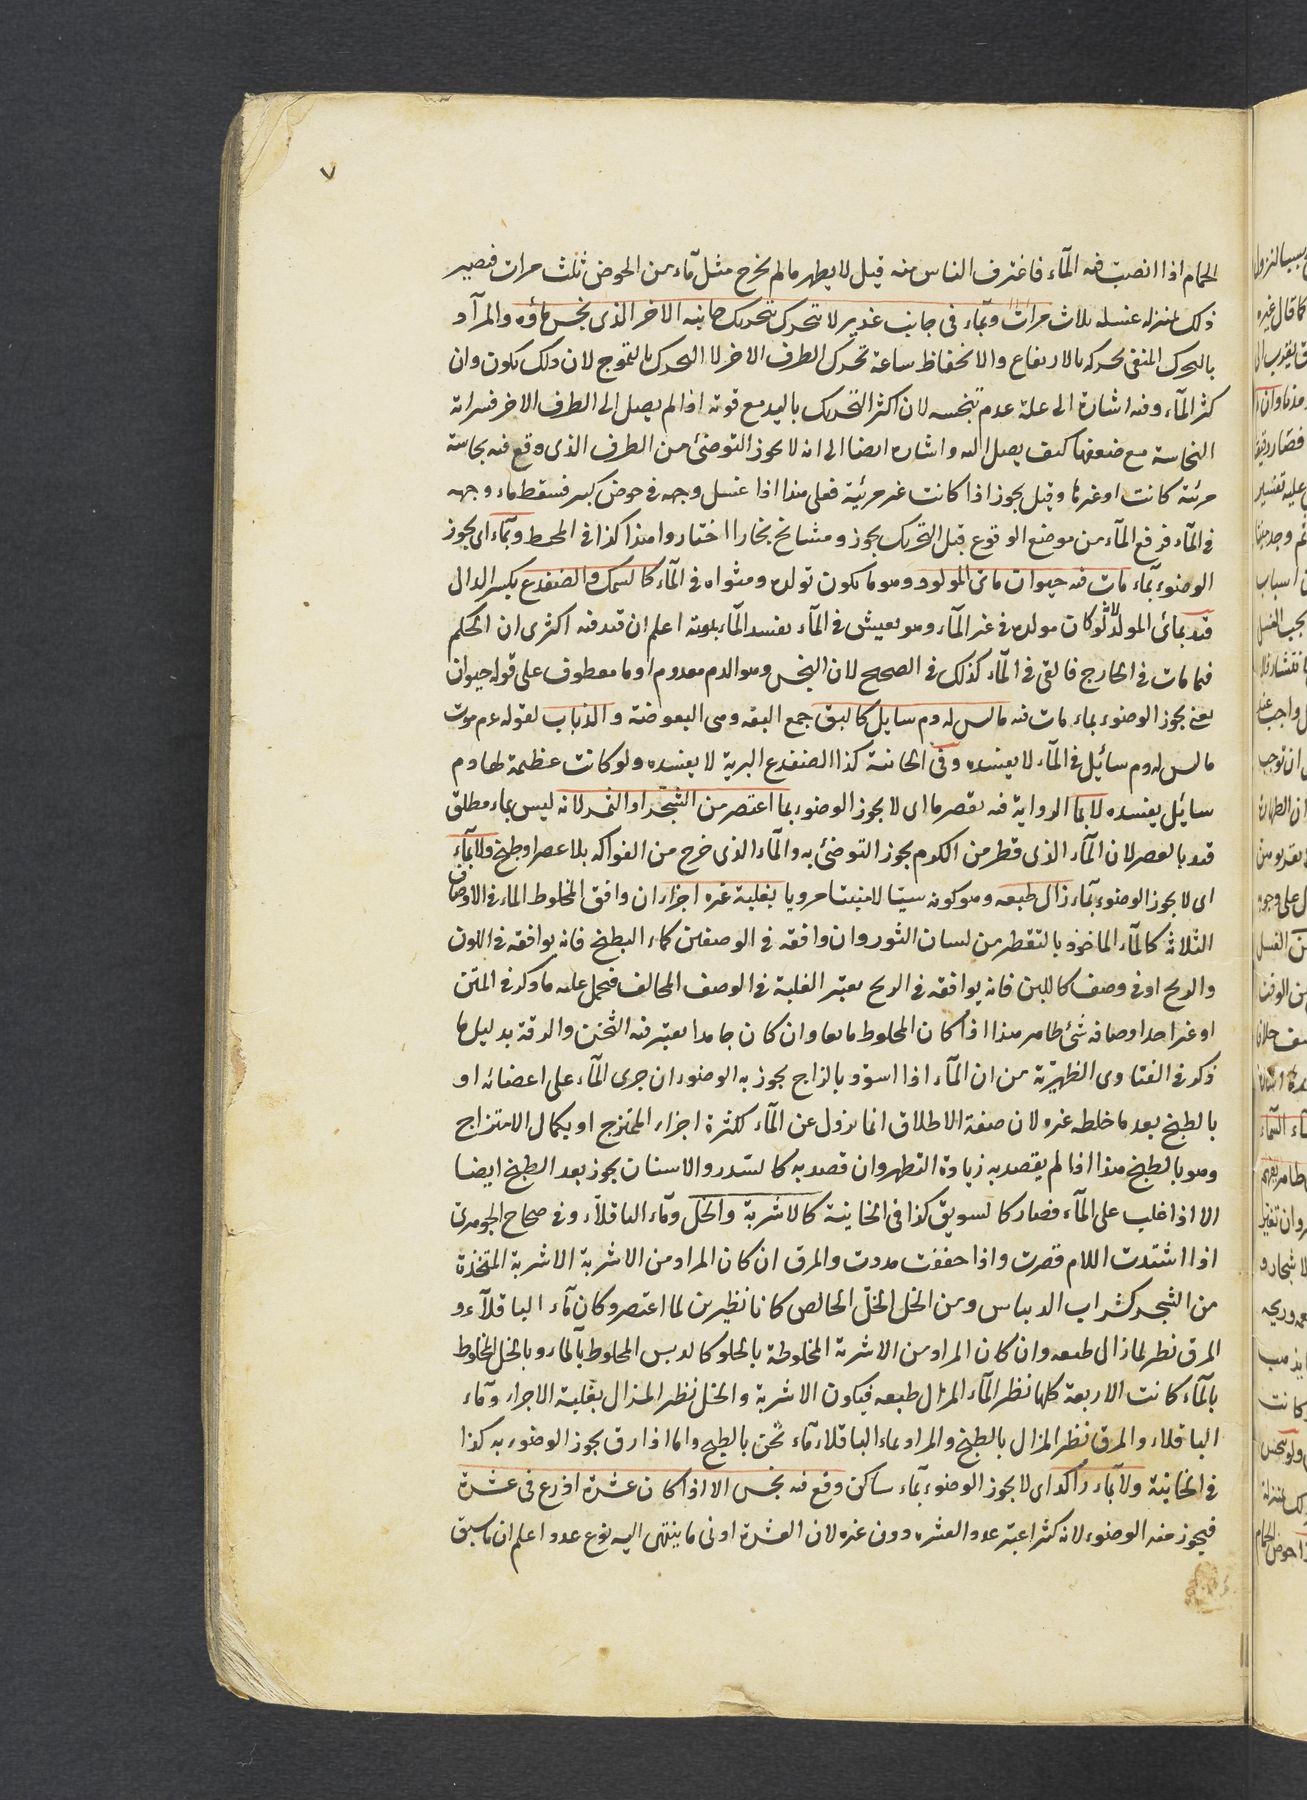 ٧
الحمام اذا انصبّ فيه المآء فاغترف الناس منه قيل لا يطهر ما لم يخرج مثل مآء من الحوض ثلث مرات فيصير
ذلك بمنزلة غسله ثلاث مرات وبمآء فى جانب غدير لا يتحرك بتحريك جانبه الاخر الذى نجس ماؤه والمرآد
بالتحرك المنفى تحركه بالارتفاع والانخفاظ ساعة تحرك الطرف الاخر لا التحرك بالتموج لان ذلك يكون وان
كثر المآء وفيه اشارة الى علة عدم تنجسه لان اكثر التحريك باليد مع قوته اذا لم يصل الى الطرف الاخر فسراته
النجاسة مع ضعفها كيف يصل اليه واشاره ايضا الى انه لا يجوز التوضئ من الطرف الذى وقع فيه نجاسة
مرئية كانت او غيرها وقيل يجوز اذا كانت غير مرئية فعلى هذا اذا غسل وجهه فى حوض كبير فسقط ماء وجهه
فى المآء فرفع المآء من موضع الوقوع قبل التحريك يجوز ومشائخ بخارا اختاروا هذا كذا فى المحيط وبمآء اى يجوز
الوضوء بمآء مات فيه حيوان مائى المولود وهو ما يكون تولده ومثواه فى المآء كالسمك والضفدع بكسر الدال
قيد بمائى المولد لانه لو كان مولده فى غير المآء وهو يعيش فى المآء يفسد المآء بموته اعلم ان قيد فيه اكثرى ان الحكم
فيما مات فى الخارج فالقى فى المآء كذلك فى الصحيح لان النجس وهو الدم معدوم او ما معطوف على قوله حيوان
يعنى يجوز الوضوء بماء مات فيه ما ليس له دم سايل كالبق جمع البقه وهى البعوضة والذباب لقوله عم موت
ما ليس له دم سائيل فى المآء لا يفسده وفى الخانية كذا الضفدع البرية لا يفسده ولو كانت عظيمة لها دم
سائيل يفسده لا بما الرواية فيه بقصر ما اى لا يجوز الوضوء بما اعتصر من الشجر او الثمر لانه ليس بماء مطلق
قيد بالعصر لان المآء الذى قطر من الكرم يجوز التوضئ به والمآء الذى خرج من الفواكه بلا عصر او طبخ ولا بمآء
اى لا يجوز الوضوء بمآء زال طبعه وهو كونه سيّالا منبتا مرويا بغلبة غيره اجزاء ان وافق المخلوط الماء فى الاوصاف
الثلاثة كالمآء الماخوذ بالتقطر من لسان الثور وان وافقه فى الوصفين كماء البطيخ فانه يوافقه فى اللون
والريح او فى وصف كاللبن فانه يوافقه فى الريح يعتبر الغلبة فى الوصف المخالف فيحمل عليه ما ذكر فى المتن
او غير احد اوصافه شئ طاهر هذا اذا كان المخلوط مايعا وان كان جامدا يعتبر فيه الثخن والرقة بدليل ما
ذكر فى الفتاوى الظهيريّة من ان المآء اذا اسوّد بالزاج يجوز به الوضوء ان جرى المآء على اعضائه او
بالطبخ بعد ما خلطه غيره لان صفة الاطلاق انما يزول عن المآء بكثرة اجزاء الممتزج او بكمال الامتزاج
وهو بالطبخ هذا اذا لم يقصد به زيادة التطهر وان قصد به كالسّدر والاسنان يجوز بعد الطبخ ايضا
الا اذا غلب على المآء فصار كالسويق كذا فى الخانية كالاشربة والخل ومآء الباقلآء وفى صحاح الجوهرى
اذا اشتدت اللام قصرت واذا خففت مددت والمرق ان كان المراد من الاشربة الاشربة المتخذة
من الشجر كشراب الديباس ومن الخل الخلّ الخالص كانا نظيرين لما اعتصر وكان مآء الباقلآء و
المرق نظير لما زال طبعه وان كان المراد من الاشربة المخلوطة بالحلو كالدبس المخلوط بالمآء وبالخل المخلوط
بالمآء كانت الاربعة كلها نظير المآء المزال طبعه فيكون الاشربة والخل نظير المزال بغلبة الاجزاء ومآء
الباقلاء والمرق نظير المزال بالطبخ والمراد بماء الباقلاء مآء ثخن بالطبخ واما اذا رق يجوز الوضوء به كذا
فى الخانية ولا بمآء راكد اى لا يجوز الوضوء بمآء ساكن وقع فيه نجس الا اذا كان عشرة اذرع فى عشرة
فيجوز منه الوضوء لانه كثر اعتبر عدد العشره دون غيره لان العشرة ادنى ما ينتهى اليه نوع عدد اعلم ان ما سبق